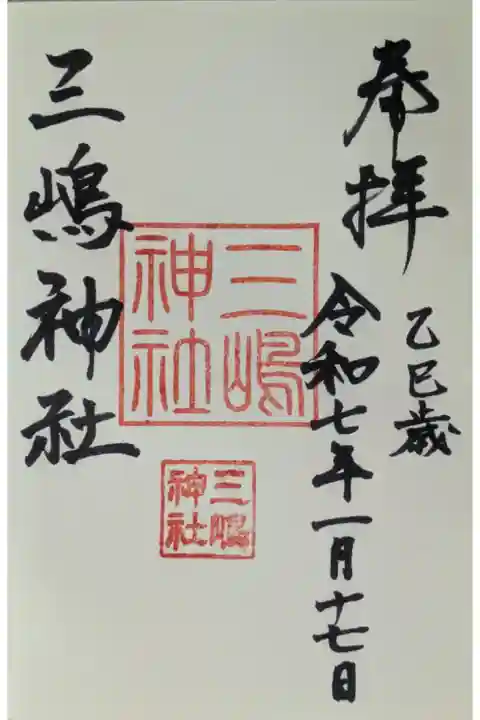 奉拝
乙巳歳
令和七年一月十七日
三嶋
神社
三嶋
神社
三嶋神社